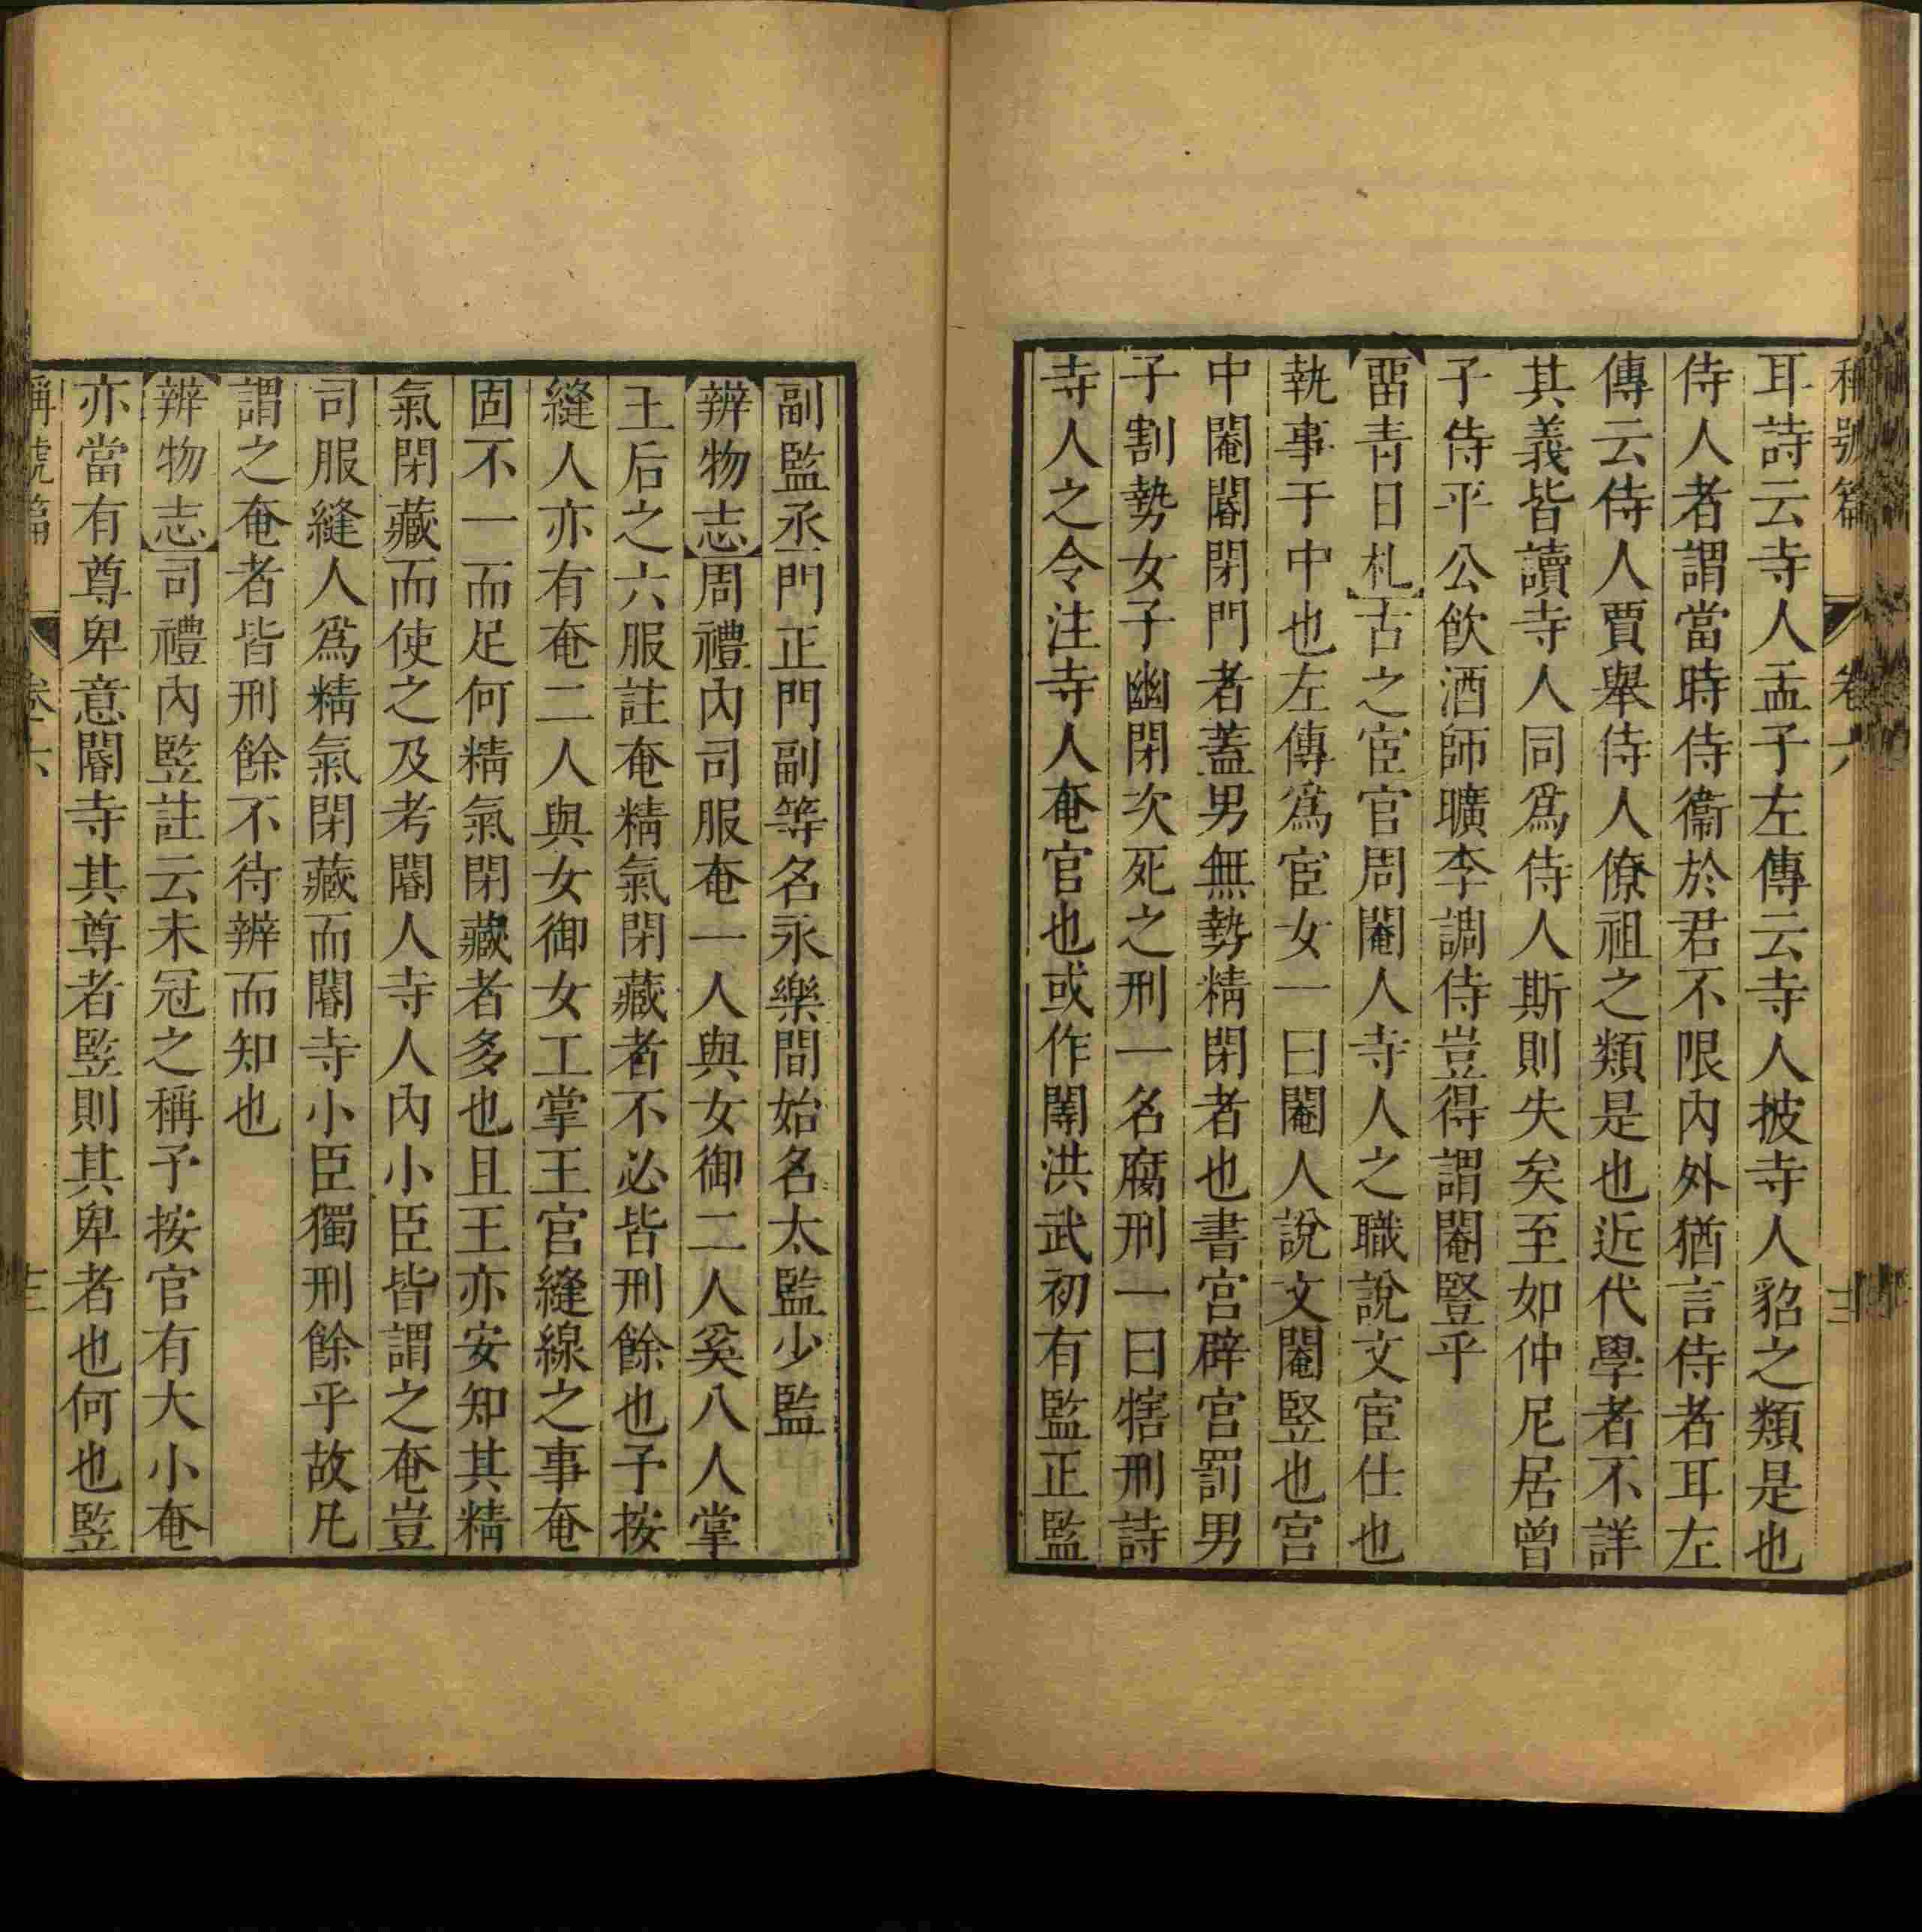 稱號篇 卷六
耳詩云寺人孟子左傳云寺人披寺人貂之類是也
侍人者謂當時侍衞於君不限內外猶言侍者耳左
傳云侍人賈舉侍人僚祖之類是也近代學者不詳
其義皆讀寺人同爲侍人斯則失矣至如仲尼居曾
子侍平公飲酒師曠李調侍豈得謂閹豎乎
畱青日札古之宦官周閹人寺人之職說文宦仕也
執事于中也左傳爲宦女一曰閹人說文閹竪也宮
中閹閽閉門者蓋男無勢精閉者也書宮辟宮罰男
子割勢女子幽閉次死之刑一名腐刑一曰犗刑詩
寺人之令注寺人奄官也或作閹洪武初有監正監
副監丞門正門副等名永樂間始名太監少監
辨物志周禮內司服奄一人與女御二人奚八人掌
王后之六服註奄精氣閉藏者不必皆刑餘也予按
縫人亦有奄二人與女御女工掌王宮縫線之事奄
固不一而足何精氣閉藏者多也且王亦安知其精
氣閉藏而使之及考閽人寺人內小臣皆謂之奄豈
司服縫人爲精氣閉藏而閽寺小臣獨刑餘乎故凡
謂之奄者皆刑餘不待辨而知也
辨物志司禮內監註云未冠之稱予按官有大小奄
亦當有尊卑意閽寺其尊者監則其卑者也何也監
稱號篇 卷六 十三